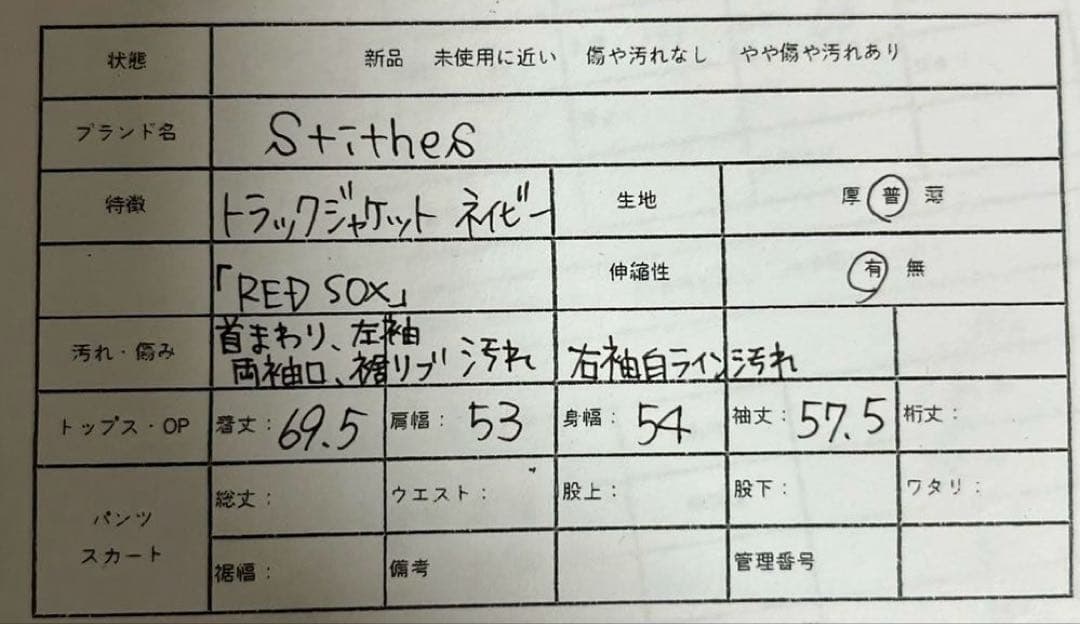 状態 新品 未使用に近い 傷や汚れなし やや傷や汚れあり
ブランド名 Stithes
特徴 トラックジャケット ネイビー 生地 厚 普 薄
「RED SOX」 伸縮性 有 無
汚れ・傷み 首まわり、左袖
両袖口、裾リブ 汚れ 右袖白ライン汚れ
トップス・OP 着丈：69.5 肩幅：53 身幅：54 袖丈：57.5 裄丈：
パンツ
スカート
総丈： ウエスト： 股上： 股下： ワタリ：
裾幅： 備考 管理番号